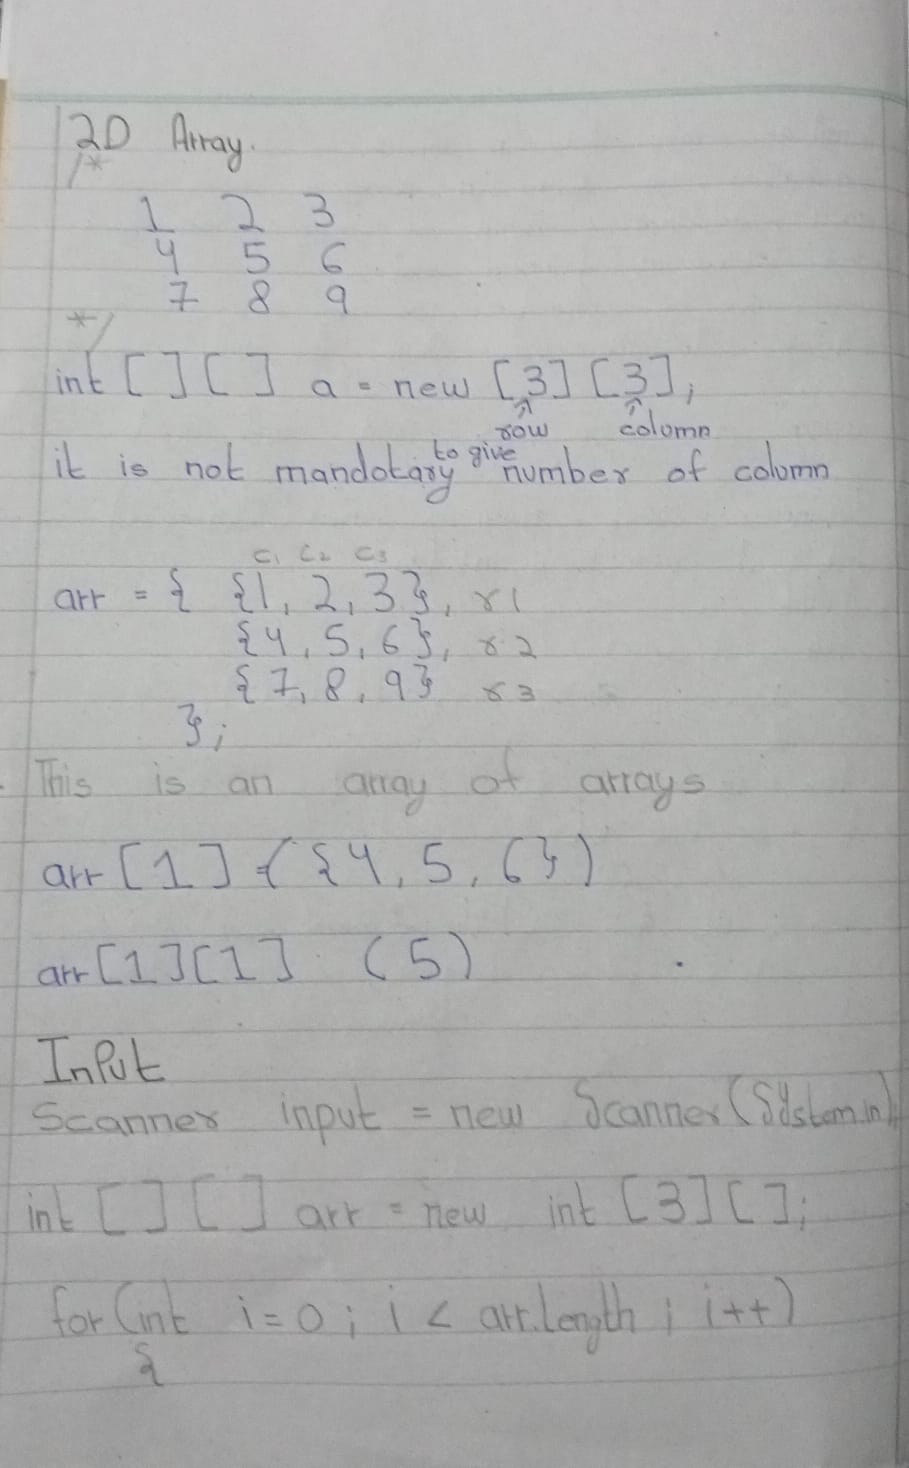 2D Array.
/*
1 2 3
4 5 6
7 8 9
*/
int [ ] [ ] a = new [3] [3];
row colomn
it is not mandotary to give number of colomn
C1 C2 C3
arr = { {1, 2, 3}, r1
{4, 5, 6}, r2
{7, 8, 9} r3
};
This is an array of arrays
arr [1] ({4, 5, 6})
arr [1][1] (5)
InPut
Scanner input = new Scanner (System.in)
int [ ] [ ] arr = new int [3] [ ];
for (int i=0 ; i < arr.length ; i++)
{